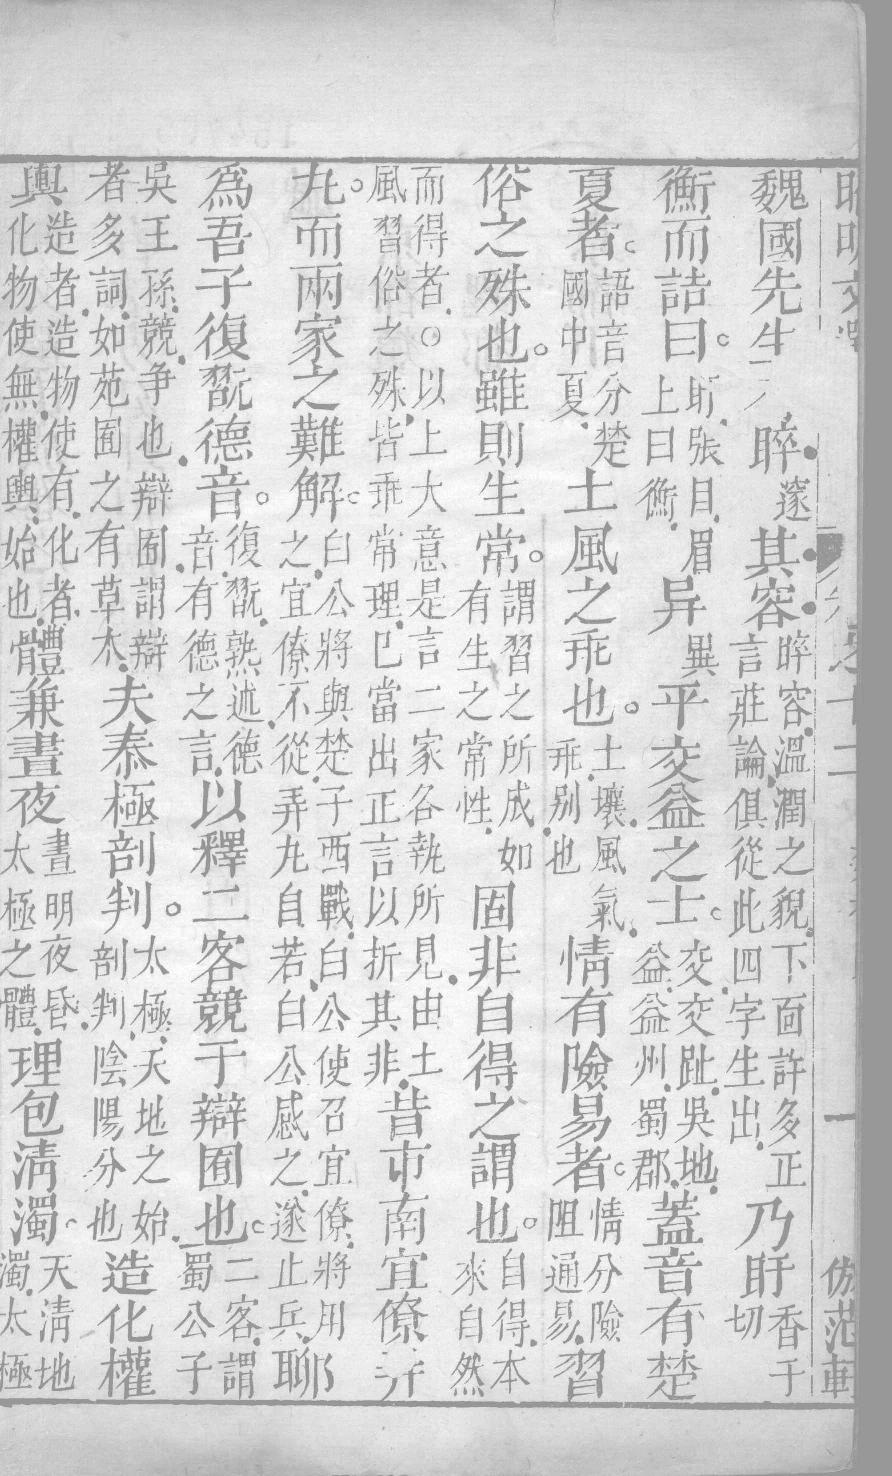 昭明文擇 卷之十二 一 倣范軒
魏國先生 睟邃其容睟容溫潤之貌下面許多正言莊論俱從此四字生出乃盱香于切
衡而誥曰盱張目眉上曰衡异異乎交益之士交交趾吳地益益州蜀郡蓋音有楚
夏者語音分楚國中夏土風之乖也土壤風氣乖别也情有險易者情分險阻通易習
俗之殊也雖則生常謂習之所成如有生之常性固非自得之謂也自得本來自然
而得者○以上大意是言二家各執所見由土風習俗之殊皆乖常理已當出正言以折其非昔市南宜僚弄
丸而兩家之難解白公將與楚子西戰白公使召宜僚將用之宜僚不從弄丸自若白公感之遂止兵聊
為吾子復翫德音復翫熟述德音有德之言以釋二客競于辯囿也二客謂蜀公子
吳王孫競争也辯囿謂辯者多詞如苑囿之有草木夫泰極剖判太極天地之始剖判陰陽分也造化權
輿造者造物使有化者化物使無權輿始也體兼晝夜晝明夜昏太極之體理包清濁天清地濁太極